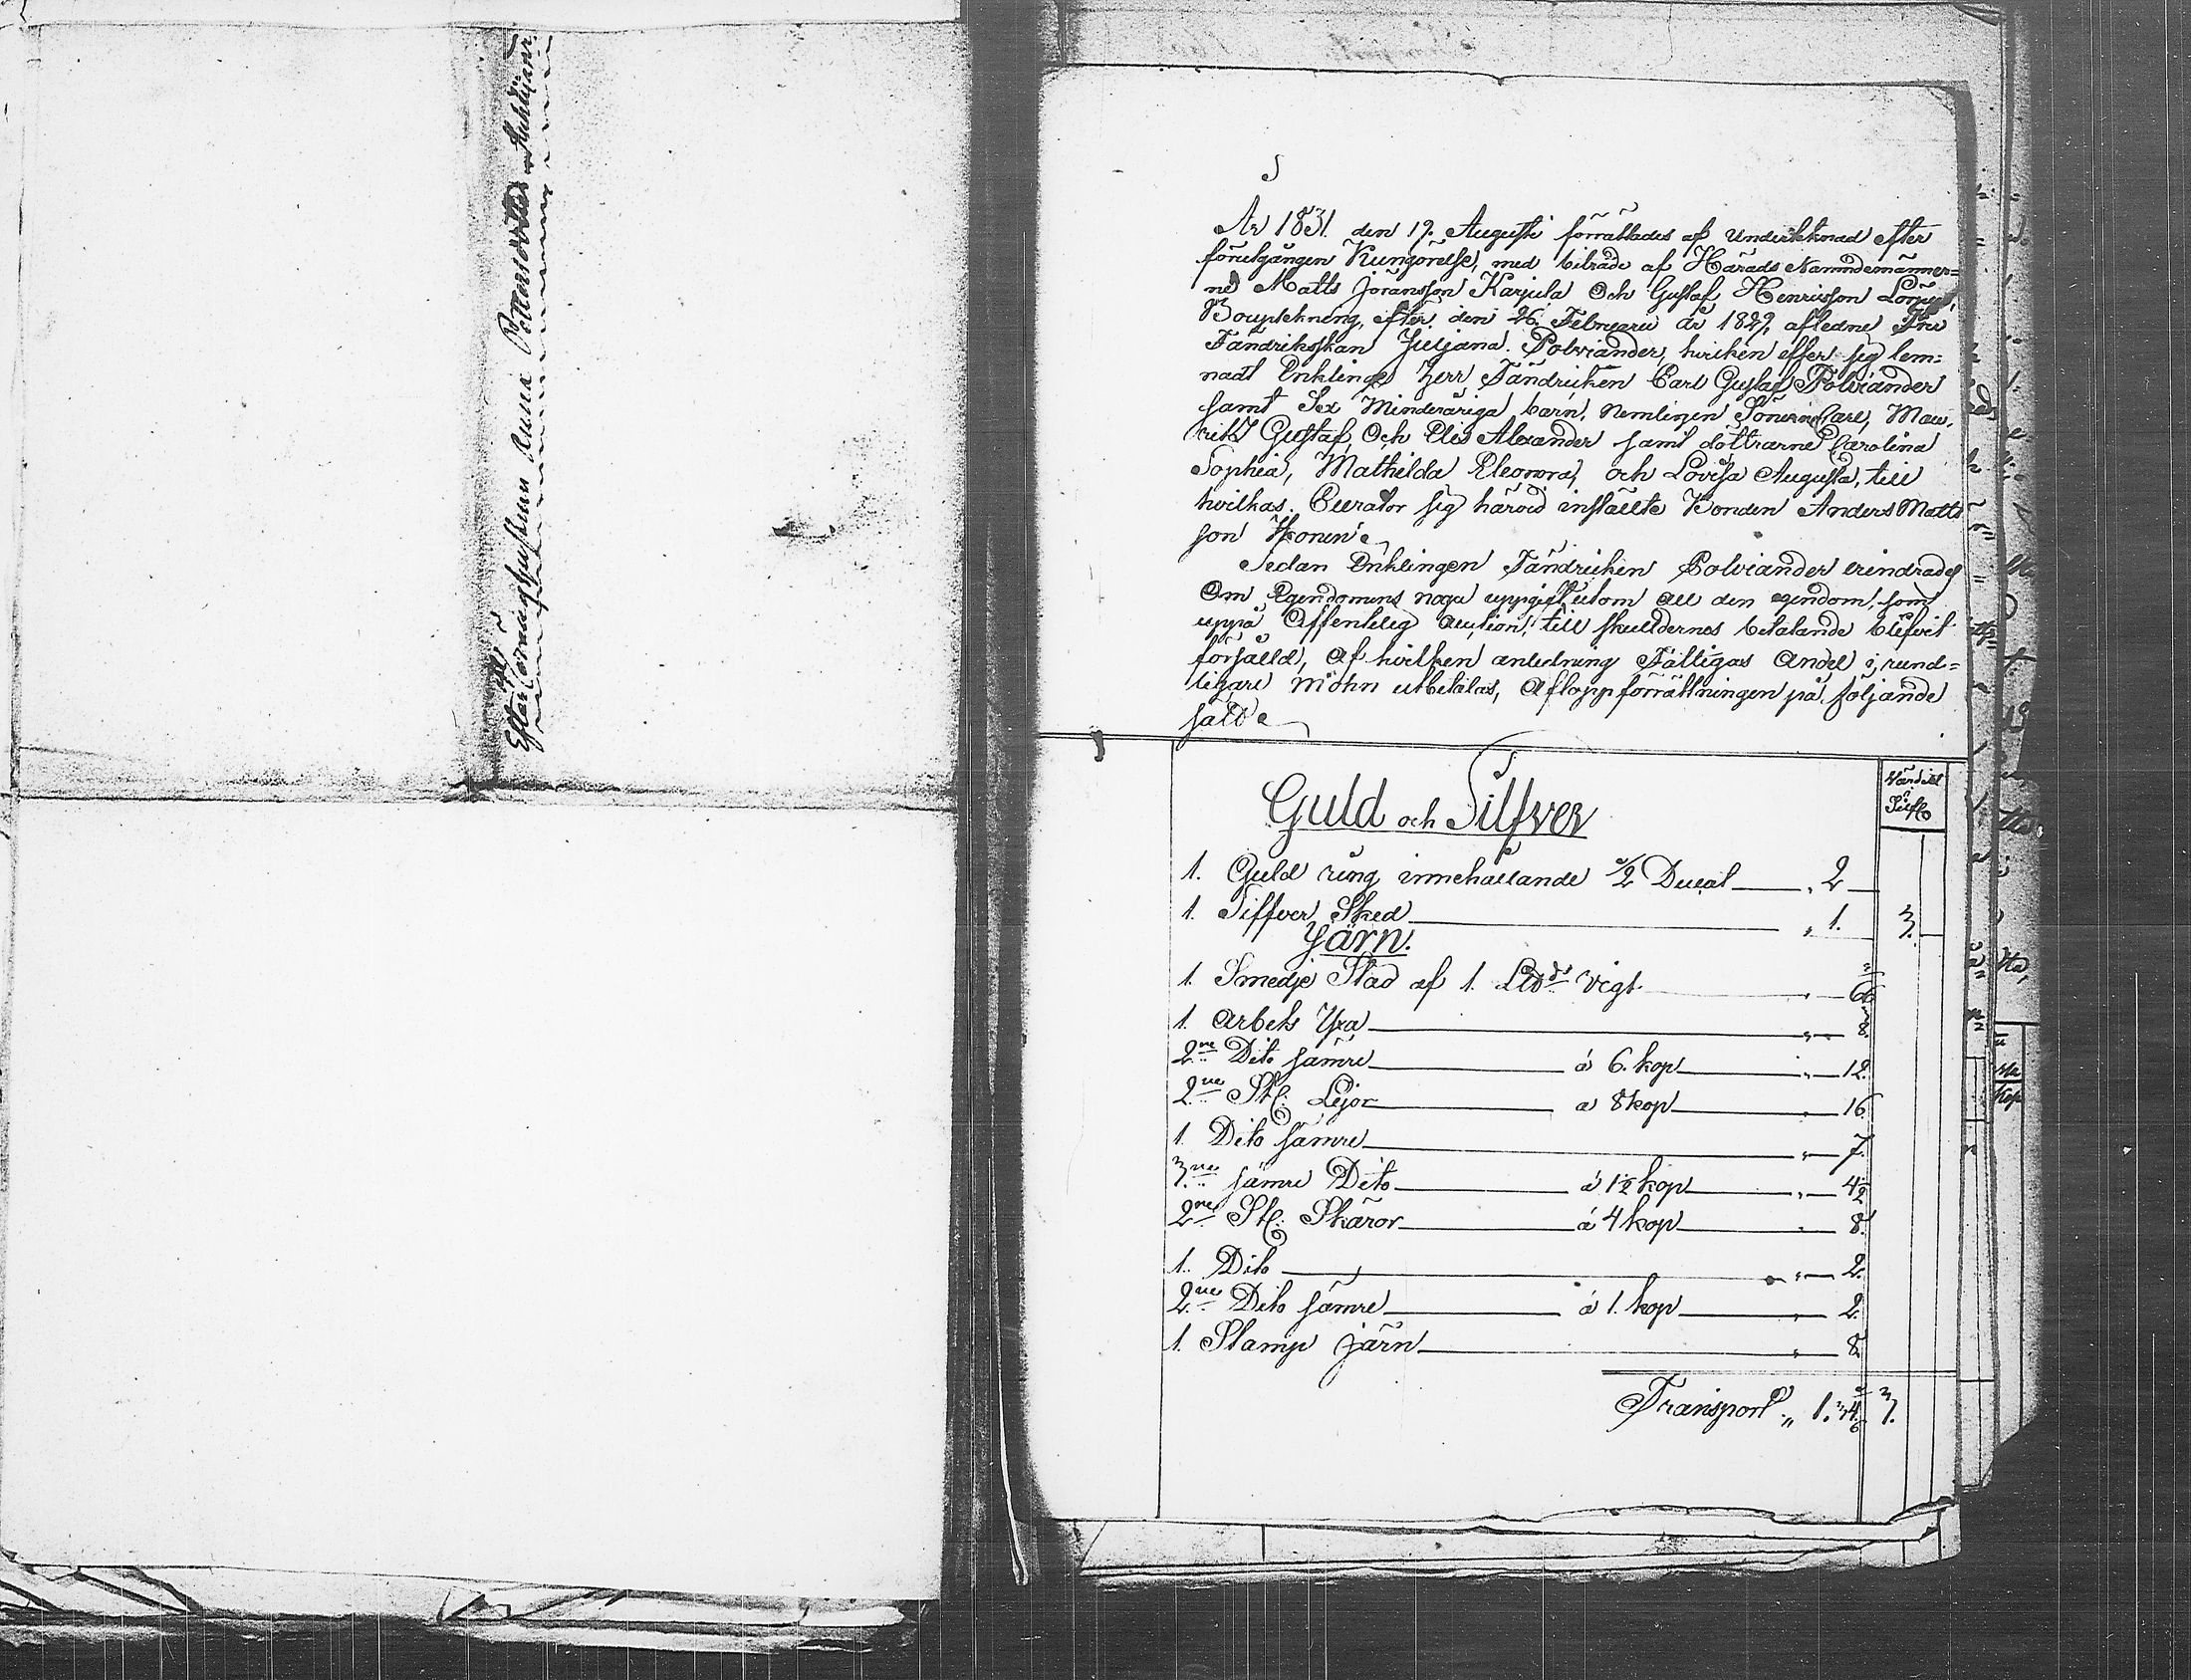 Efter Cornæt hustrun Anna Pettersdotter Auktijaner
År 1831. den 19. Augusti förrättades af Underteknad efter
förutgången Kungörelse, med biträde af Härads Nämndemänner=
ne Matts Jöransson Karjula Och Gustaf Henrisson
Bouptekning, efter den 26. Februarii år 1829, afledne Fru
Fändrikskan Juljana Polviander, hvilken efter sig lem=
nadt Enklingen Herr Fändricken Carl Gustaf Polviander
samt Sex Minderåriga barn, nemligen Sönerne Carl, Mau=
ritz Gustaf, Och Elis Alexander samt döttrarne Carolina
Sophia, Mathilda Eleonora, och Lovisa Augusta, till
hvilkas Curator sig härvid inställte Bonden Anders Matts
son
Sedan Enklingen Fändricken Polviander erindrades
Om Egendomens noga uppgift utom all den egendom, som
uppå Offentelig Auction, till skulldernes betalande blifvit
försålld, Af hvilken anledning Fattigas Andel i
mohn utbetalas, Aflopp förrättningen på följande
sätt
Guld och Silfver
Värd i
Silf
1. Guld ring innehållande 1/2 Ducat „ 2
1. Silfver Sked „ 1. 3.
Järn.
1. Smedje Städ af 1. L℔ds vigt „ 66
1. Arbets Yxa „ 8
2ne Dito sämre á 6. kop „ 12.
2ne St: Lijor á 8 kop „ 16
1. Dito sämre „ 7.
3ne sämre Dito á 1½ kop „ 4½
2ne St: Skäror á 4 kop „ 8
1. Dito „ 2.
2ne Dito sämre á 1. kop „ 2.
1. Stamp järn „ 8
Transport „ 1. 3.